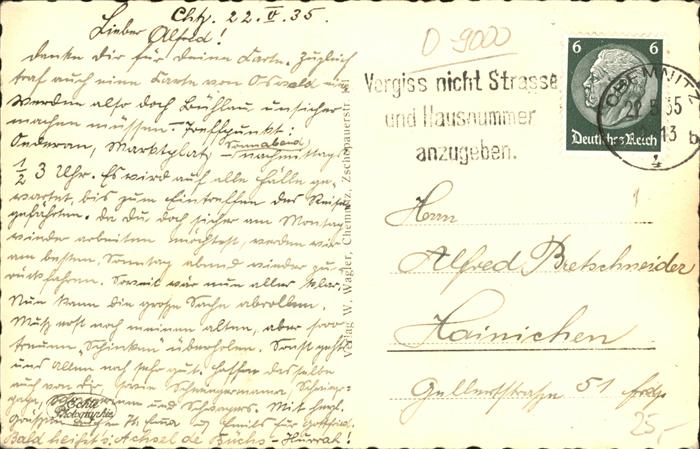 Chtz. 22. V. 35.
Lieber Alfred!
danke dir für deine Karte. Zugleich
traf auch eine Karte von Oswald ein.
Werden also doch Bühlau unsicher
machen müssen. Treffpunkt:
Oederan, Marktplatz, Sonnabend nachmittag
½ 3 Uhr. Es wird auf alle Fälle ge-
wartet, bis zum Eintreffen des Reise-
gefährten. Da du doch sicher am Montag
wieder arbeiten möchtest, werden wir
am besten Sonntag abend wieder zu-
rückfahren. Soweit wär nun alles klar.
Nun kann die große Sache abrollen.
Muß erst noch meinen alten, aber
treuen „Schinken" überholen. Sonst geht
uns allen noch sehr gut. Hoffen dasselbe
auch von dir, sowie Schwiegermama,
und Schwagers. Mit herzl.
Grüssen
Bald heißt's: Achsel de Büchs - Hurrah!
Echte
Photographie
Verlag W. Wagler, Chemnitz, Zschopauerstr.
D-9000
Vergiss nicht Strasse
und Hausnummer
anzugeben.
6 6
Deutsches Reich
CHEMNITZ
22.5.35
13
b
4
Herrn
Alfred Bretschneider
Hainichen
Gellertstraße 51
25,-